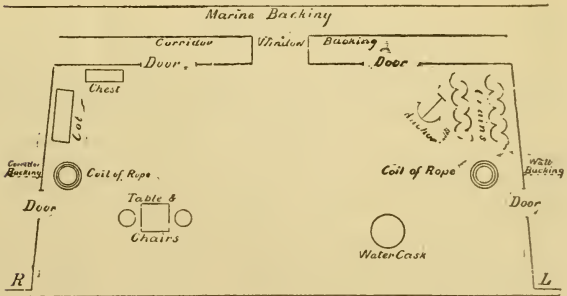 Marine Backing
Corridor Window Backing
Door. Door
Chest
Cot
Anchor
Chains
Corridor Backing
Coil of Rope
Coil of Rope
Wall Backing
Door
Table &
Chairs
Door
Water Cask
R L